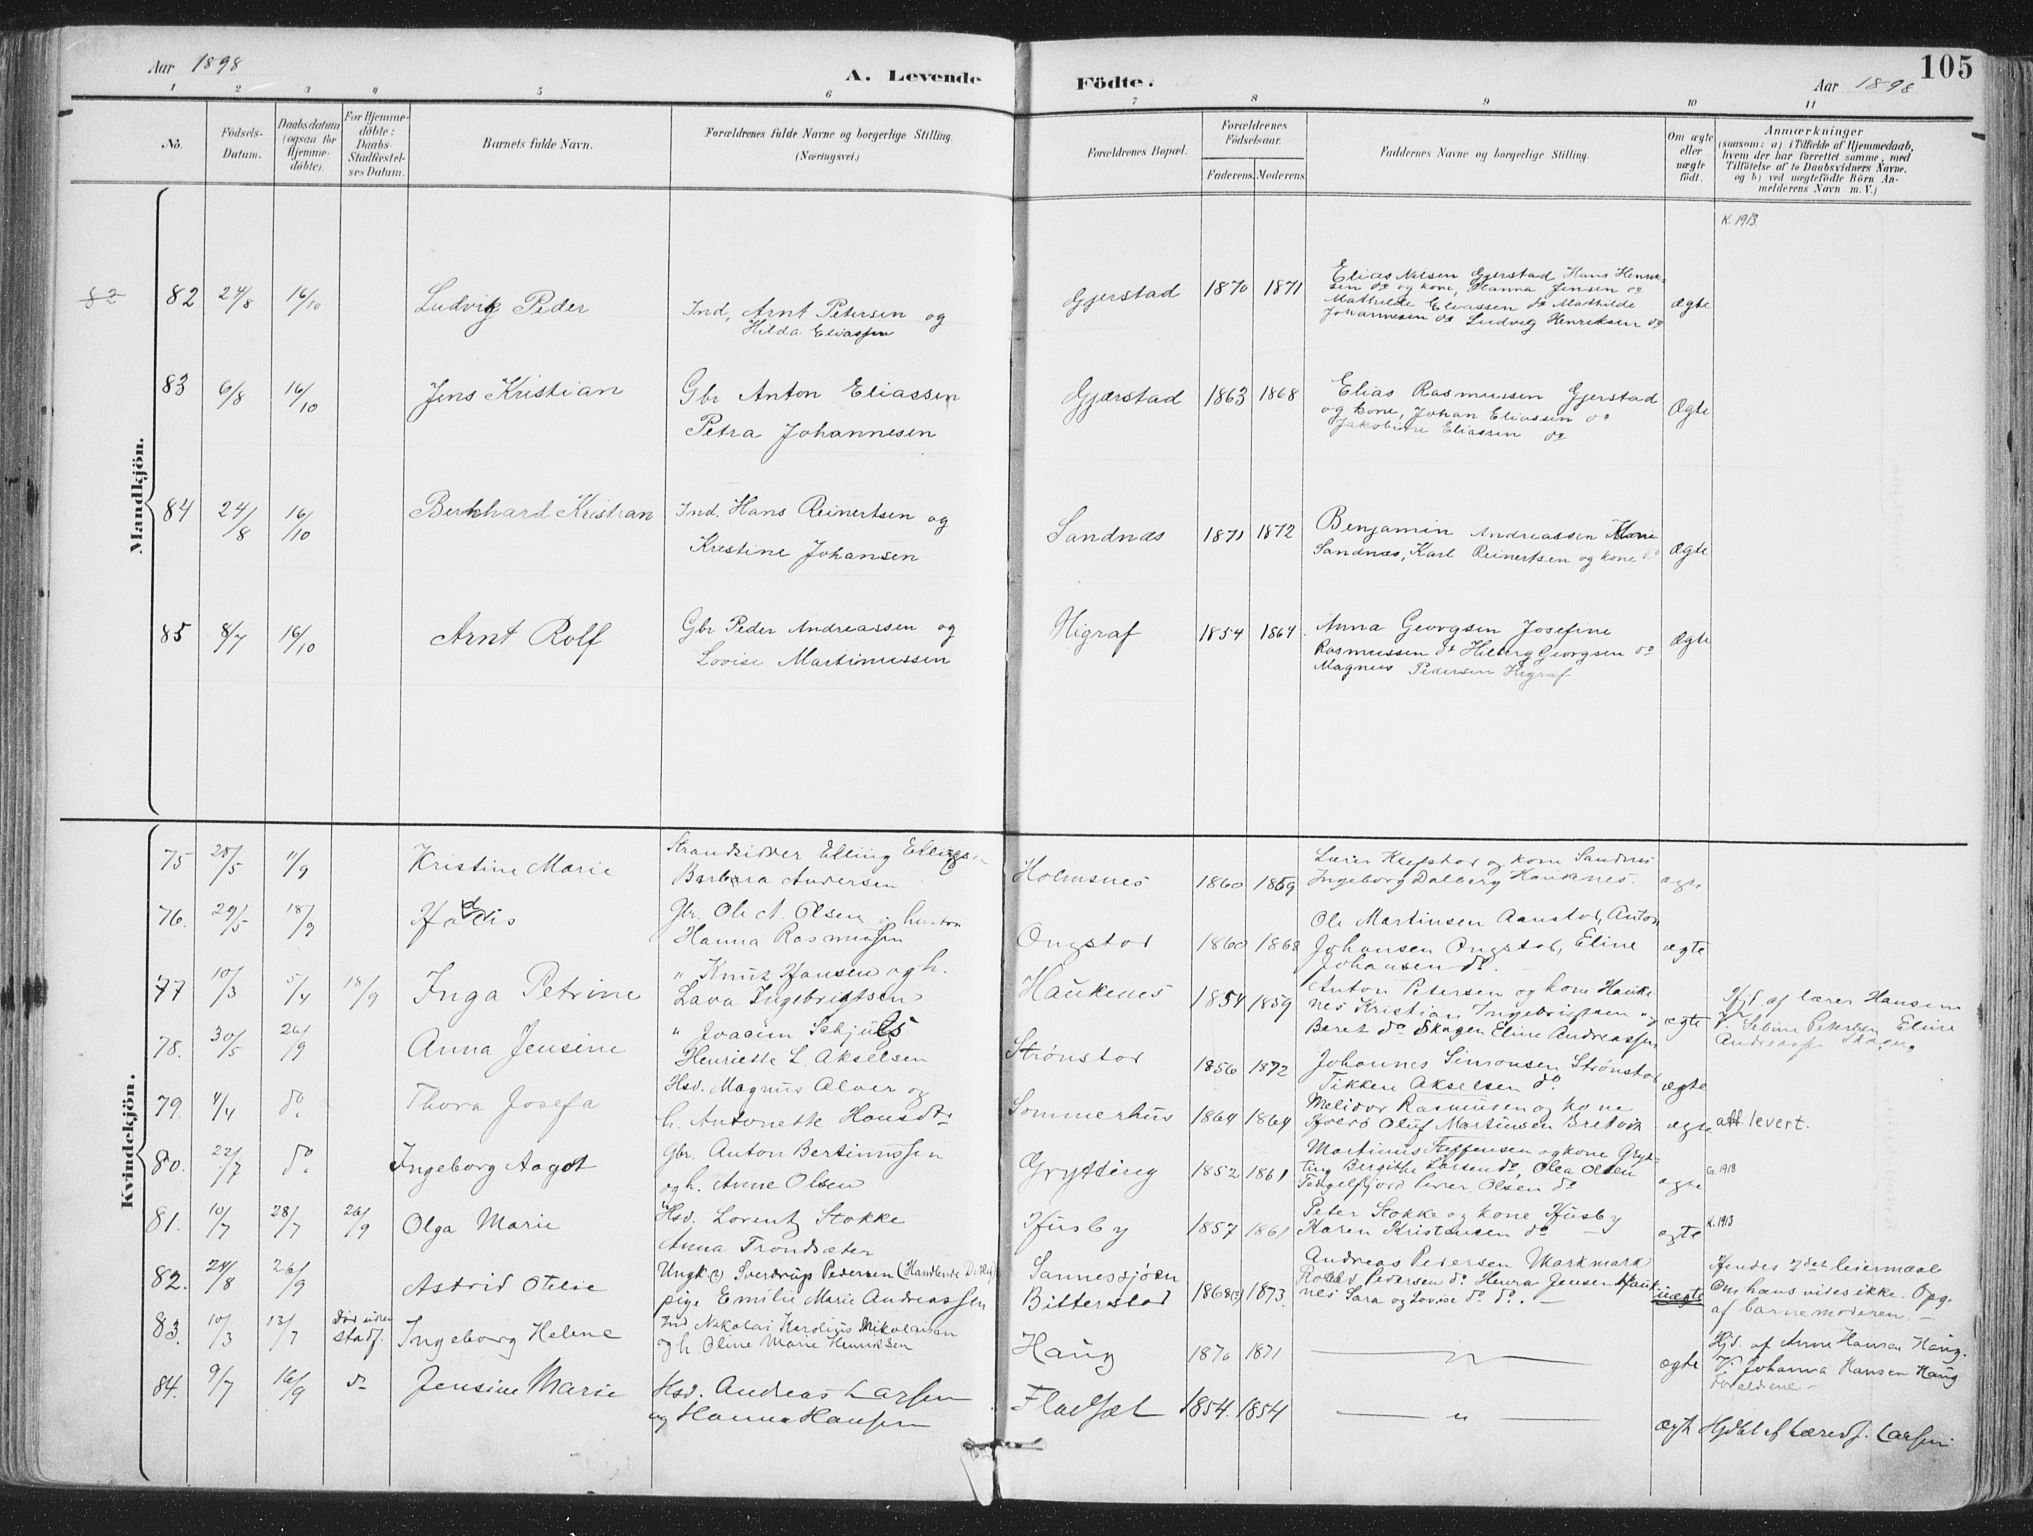 Aar 1898
A. Levende Födte.
105
Aar 1898
1 2 3 4 5 6 7 8 9 10 11
No.
Födsels-Datum.
Daabsdatum (ogsaa for Hjemme-döbte).
For Hjemme-döbte: Daabs-Stadfæstel-ses Datum.
Barnets fulde Navn.
Forældrenes fulde Navne og borgerlige Stilling. (Næringsvei.)
Forældrenes Bopæl.
Forældrenes Födselsaar.
Faderens. Moderens.
Faddernes Navne og borgerlige Stilling.
Om ægte eller uægte födt.
Anmærkninger (saasom: a) i Tilfælde af Hjemmedaab, hvem der har forrettet samme, med Tilföielse af to Daabsvidners Navne. og b) ved uægtefödte Börn An-melderens Navn m. V.)
Mandkjön.
K. 1913
82 82 24/8 16/10 Ludvig Peder
Ind, Arnt Petersen og
Hilda Eliassen
Gjerstad 1870 1871
Elias Nilsen Gjerstad Hans Henrik-
sen do og kone, Hanna Jensen do
Mathilde Eliassen do Mathilde
Johannesen do Ludvig Henriksen do
Ægte
83 6/8 16/10 Jens Kristian
Gbr Anton Eliassen
Petra Johannesen
Gjærstad 1863 1868
Elias Rasmussen Gjerstad
og kone, Johan Eliassen do
Jakobine Eliassen do
Ægte
84 24/8 16/10 Bernhard Kristian
Ind. Hans Reinertsen og
Kristine Johansen
Sandnæs 1871 1872
Benjamin Andreassen
Sandnæs, Karl Reinertsen og kone do
Ægte
85 8/7 16/10 Arnt Rolf
Gbr Peder Andreassen og
Lovise Martinussen
Higraf 1854 1864
Anna Georgsen Josefine
Rasmussen do Hilberg Georgsen do
Magnus Pedersen Higraf
Ægte
Kvindekjön.
75 28/5 11/9 Kristine Marie
Strandsidder Elling Ellingsen
Barbara Andersen
Holmsnes 1860 1859
Lærer og kone Sandnes
Ingeborg Dalberg Hauknes.
ægte
76. 29/5 18/9
Gbr. Ole A. Olsen og hustru
Hanna Rasmussen
Ongstad 1860 1868
Ole Martinsen Aanstad, Anton
Johansen Ongstad, Eline
Johansen do. -
ægte
77 10/3 5/4 18/9 Inga Petrine
" Knut Hansen og h.
Lava Ingebrigtsen
Haukenes 1854 1859
Anton Petersen og kone Hauke
nes Kristian Ingebrigtsen og
Beret do Skagen Eline Andreassen
ægte
Hjd. af lærer Hansen
V. Petersen Eline
Andreassen Skagen
78. 30/5 26/9 Anna Jensine
" Joacim Schjulds
Henriette L. Akselsen
Strønstad 1856 1872
Johannes Simonsen Strønstad
Tikken Akselsen do
ægte
79. 4/4 do Thora Josefa
Hsd. Magnus Alver og
h. Antonette Hansdtr
Sommerhus 1864 1864
Melidor Rasmusen og kone
Oluf Martinsen Bretvik
ægte
att. levert.
80. 22/7 do Ingeborg Aagot
Gbr. Anton Bertinussen
og h. Anne Olsen
Grytting 1852 1861
Martinus Steffensen og kone Gryt-
ting Bergithe Larsen do, Olea Olsen
Tengelfjord Olsen do
ægte
G. 1918
81. 10/7 28/7 26/9 Olga Marie
Hsd. Lorentz Stokke
Anna Trondsæter
Husby 1857 1861
Peter Stokke og kone Husby
Karen Kristensen do
ægte
K. 1913
82. 24/8 26/9 Astrid Otelie
Ungk(?) Sverdrup Pedersen (Handlende
pige Emilie Marie Andreassen
Sannessjøen
Bitterstad 1868(?) 1873.
Andreas Pedersen Markmark
Pedersen do Henra Jensen Hauk
nes Sara og Lovise do do. -
uægte
Hendes 2det leiermaal
Om hans vides ikke. Opg.
af barnemoderen. -
83. 10/3 13/7 Død uden stadf. Ingeborg Helene
Ind Nikolai Karelius Nikolaisen
og h Oline Marie Henriksen
Haug 1870 1871
ægte
Hjd. af Anne Hansen Haug.
V. Johanna Hansen Haug
Forældrene -
84. 9/7 16/9 do Jensine Marie
Hsd. Andreas Larsen
og Hanna Hansen
Fladsæt 1854. 1854
— " —
ægte
Hjdbt af Larsen